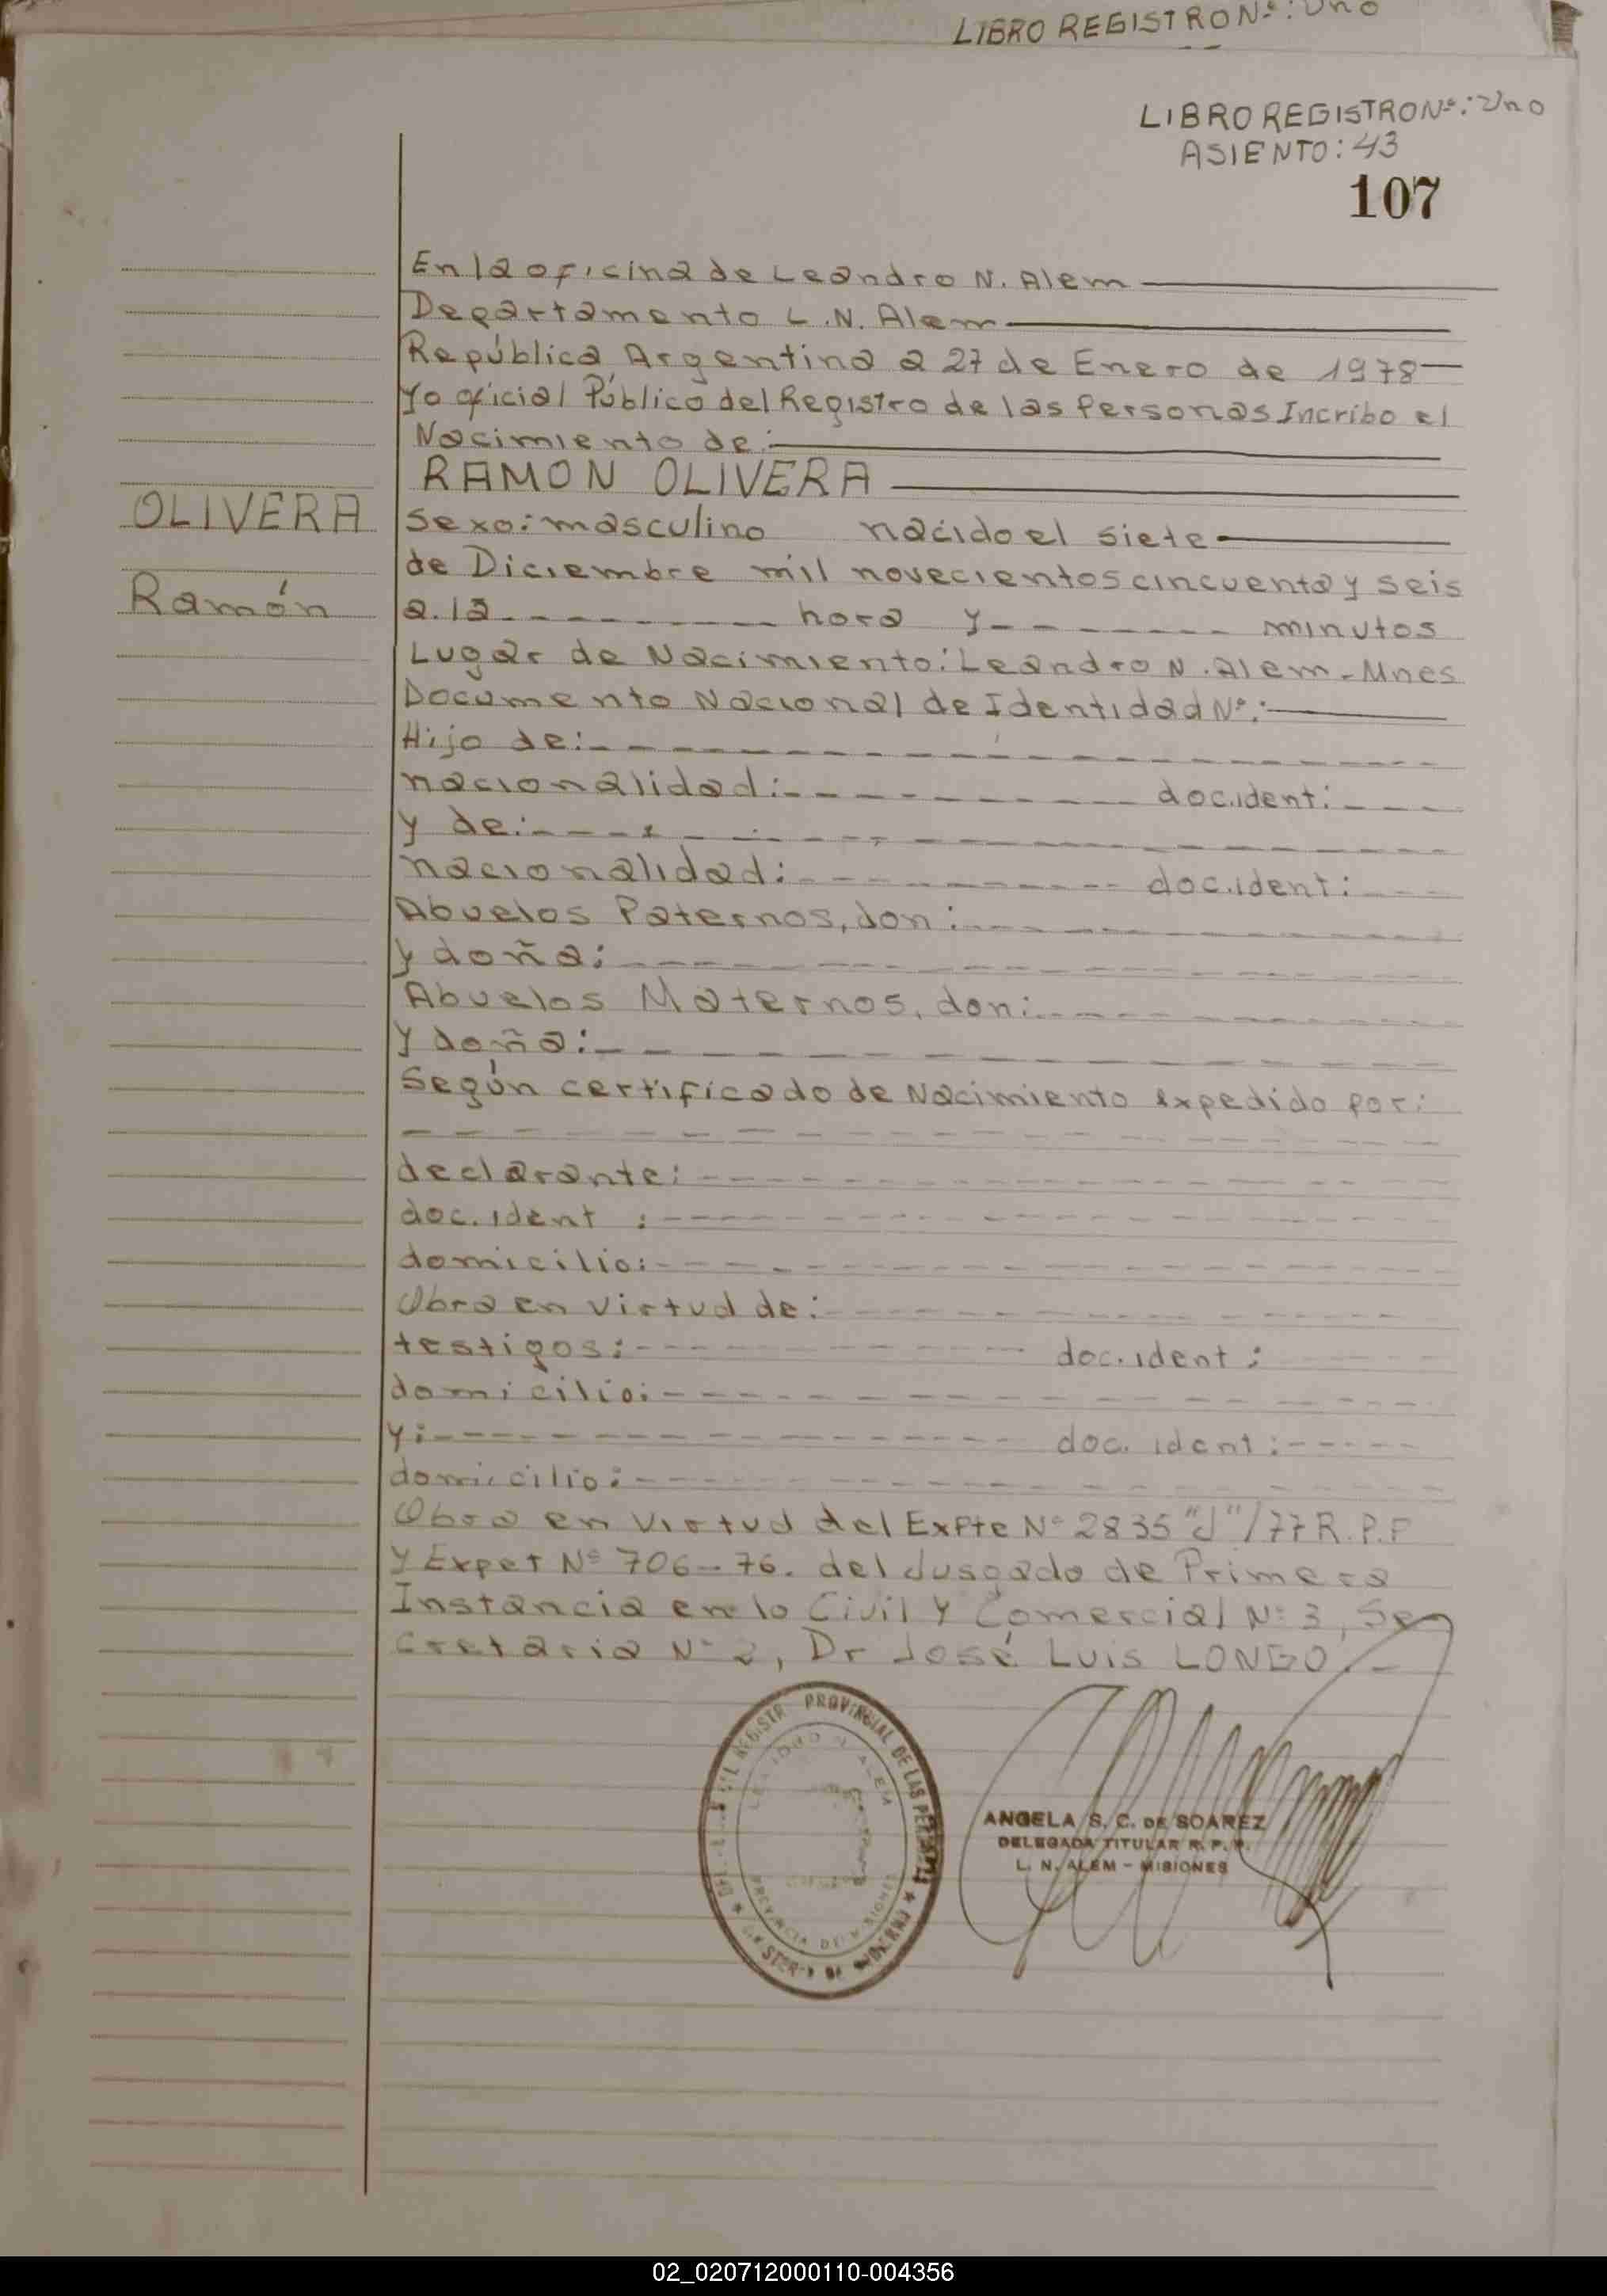 LIBRO REGISTRO Nº: Uno
LIBRO REGISTRO Nº: Uno
ASIENTO: 43
107
En la oficina de Leandro N. Alem
Departamento L. N. Alem
República Argentina a 27 de Enero de 1978
Yo oficial Público del Registro de las Personas Incribo el
Nacimiento de:
RAMON OLIVERA
OLIVERA
Sexo: masculino nacido el siete
de Diciembre mil novecientos cincuenta y seis
Ramón
a. la --------- hora y-------- minutos
Lugar de Nacimiento: Leandro N. Alem - Mnes
Documento Nacional de Identidad Nº:
Hijo de:
nacionalidad: doc.ident:
y de:
nacionalidad: doc.ident:
Abuelos Paternos, don:
y doña:
Abuelos Maternos, don:
y doña:
Según certificado de Nacimiento expedido por:
declarante:
doc. ident :
domicilio:
Obra en virtud de:
testigos: doc.ident :
domicilio:
y: doc. ident :
domicilio:
Obra en virtud del Expte Nº 2835 "J"/77 R.P.P
y Expet Nº 706-76. del Jusgado de Primera
Instancia en lo Civil y Comercial Nº 3, Se
cretaria Nº 2, Dr José Luis LONGO.-
REGISTR PROVINCIAL DE LAS
PROVINCIA DE MISIONES
ANGELA S. C. DE SOAREZ
DELEGADA TITULAR R. P. P.
L. N. ALEM - MISIONES
02_020712000110-004356